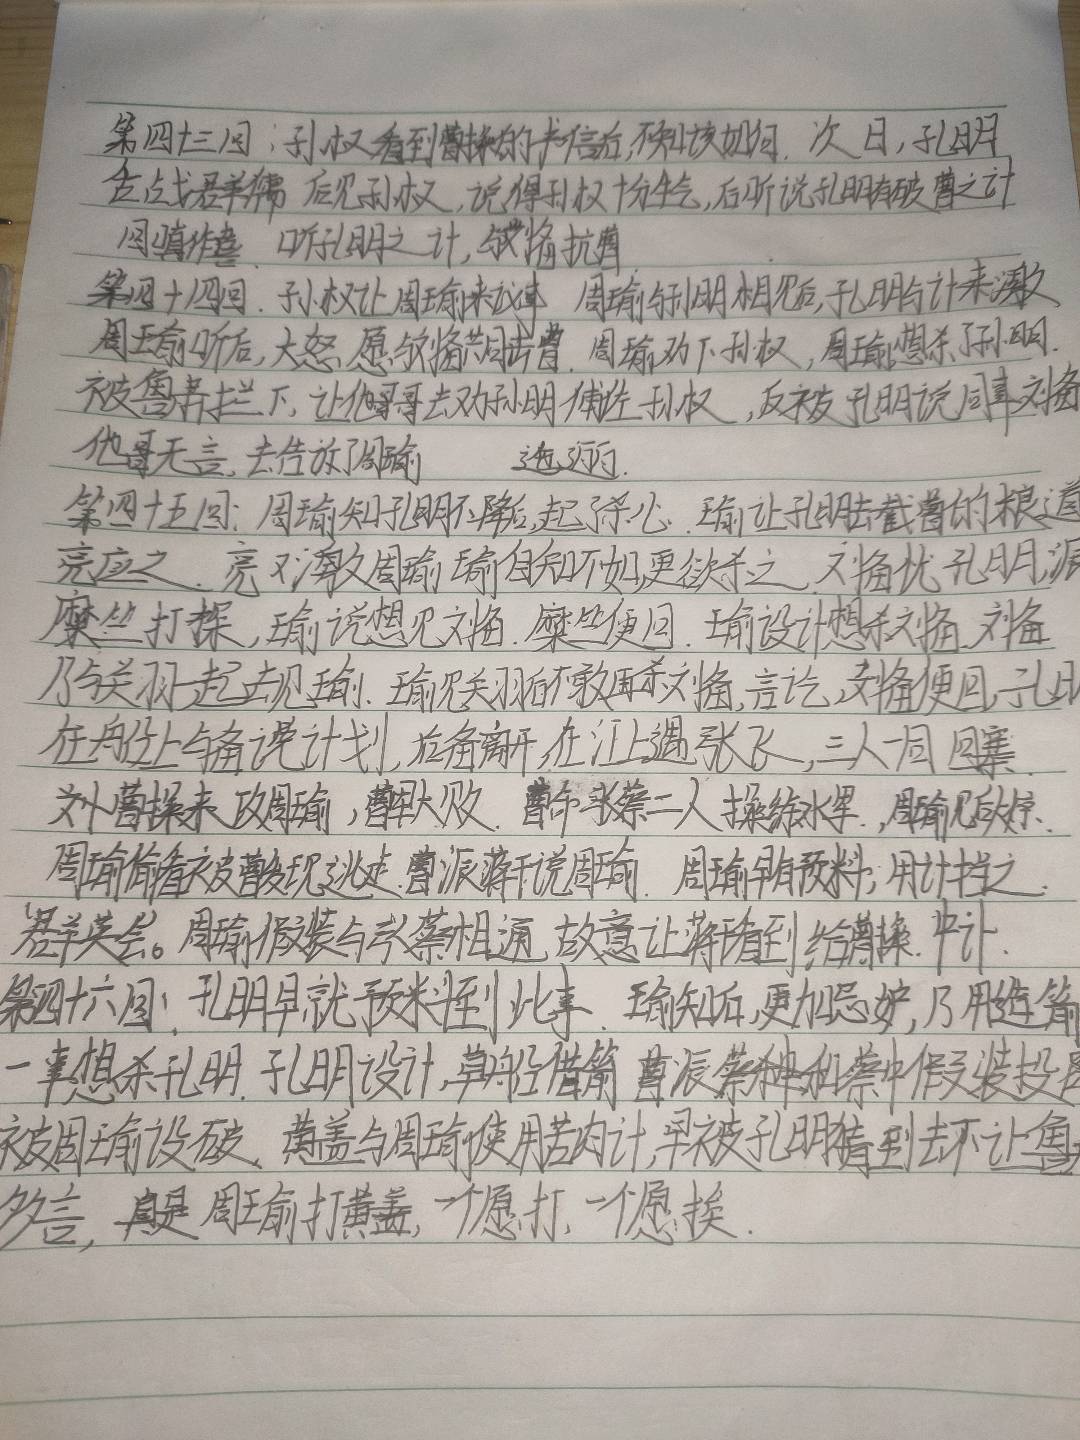 第四十三回：孙权看到曹操的书信后，不知该如何．次日，孔明
舌战群儒 后见孙权，说得孙权十分生气，后听说孔明有破曹之计
回嗔作喜．听孔明之计，与刘备抗曹
第四十四回．孙权让周瑜来议事 周瑜与孔明相见后，孔明与计来激
周瑜听后，大怒，愿与刘备共同击曹．周瑜劝下孙权，周瑜想杀了孔明．
被鲁肃拦下，让他哥哥去劝孔明 辅佐孙权，反被孔明说同事刘备
他哥无言，去告放了周瑜
第四十五回：周瑜知孔明不降后，起了杀心．瑜让孔明去截曹的粮道
亮应之．亮又激周瑜 瑜自知不如，更欲杀之．刘备忧孔明，派
糜竺打探，瑜说想见刘备．糜竺便回．瑜设计想杀刘备．刘备
乃与关羽一起去见瑜．瑜见关羽后不敢再杀刘备，言讫，刘备便回，孔明
在舟上与备说计划，后备离开，在江上遇张飞，三人一同回寨．
曹操来攻周瑜，曹军大败．曹命张蔡二人操练水军．，周瑜见后大惊．
周瑜偷看被曹发现逃走．曹派蒋干说周瑜．周瑜早有预料，用计挡之．
群英会。周瑜假装与张蔡相通，故意让蒋看到给曹操．中计．
第四十六回：孔明早就预料到此事．瑜知后，更加忌妒，乃用造箭
一事想杀孔明．孔明设计，草船借箭 曹派蔡和蔡中假装投
被周瑜设破．黄盖与周瑜使用苦肉计，早被孔明猜到去不让鲁
多言，真是周瑜打黄盖，一个愿打，一个愿挨．